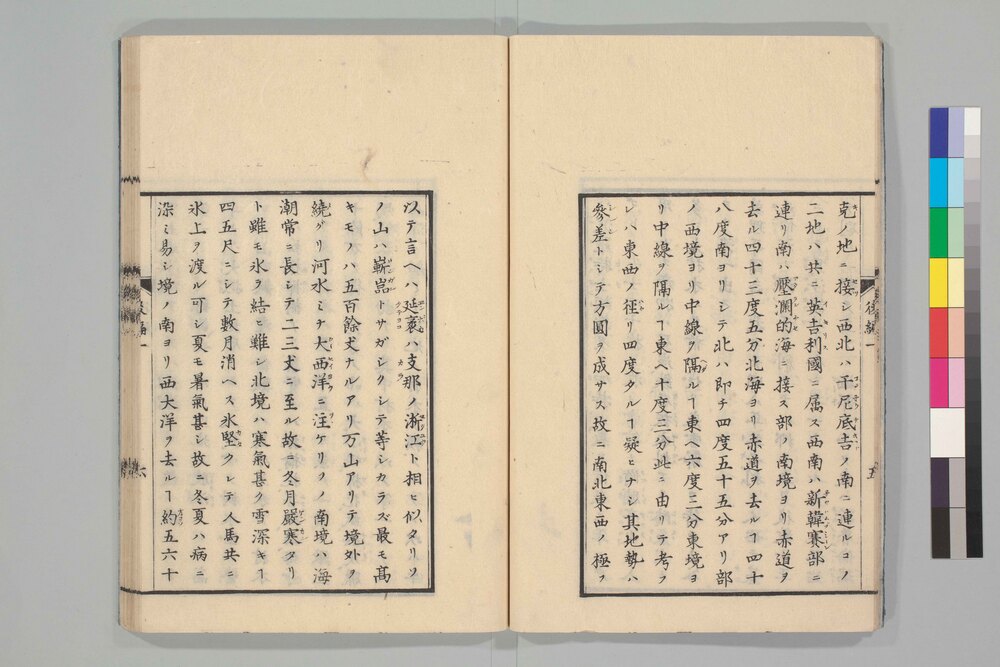 克ノ地ニ接シ西北ハ干尼底吉ノ南ニ連ルコノ
二地ハ共ニ英吉利國ニ属ス西南ハ新韓賽部ニ
連リ南ハ壓瀾的海ニ接ス部ノ南境ヨリ赤道ヲ
去ル四十三度五分北海ヨリ赤道ヲ去ルヿ四十
八度南ヨリシテ北ハ即チ四度五十五分アリ部
ノ西境ヨリ中線ヲ隔ルヿ東ヘ六度三分東境ヨ
リ中線ヲ隔ルヿ東ヘ十度三分此ニ由リテ考フ
レハ東西ノ徑リ四度タルヿ疑ヒナシ其地勢ハ
參差トシテ方圓ヲ成サス故ニ南北東西ノ極ヲ
後編一
五
以テ言ヘハ延袤ハ支那ノ浙江ト相ヒ似タリソ
ノ山ハ嶄嵓トサガシクシテ等シカラズ最モ髙
キモノハ五百餘丈ナルアリ万山アリテ境外ヲ
繞グリ河水ミナ大西洋ニ注ケリソノ南境ハ海
潮常ニ長シテ二三丈ニ至ル故ニ冬月嚴寒タリ
ト雖モ氷ヲ結ヒ難シ北境ハ寒氣甚ク雪深キヿ
四五尺ニシテ數月消ヘス氷堅クシテ人馬共ニ
氷上ヲ渡ル可シ夏モ暑氣甚シ故ニ冬夏ハ病ニ
染ミ易シ境ノ南ヨリ西大洋ヲ去ルヿ約五六十
後編一
六